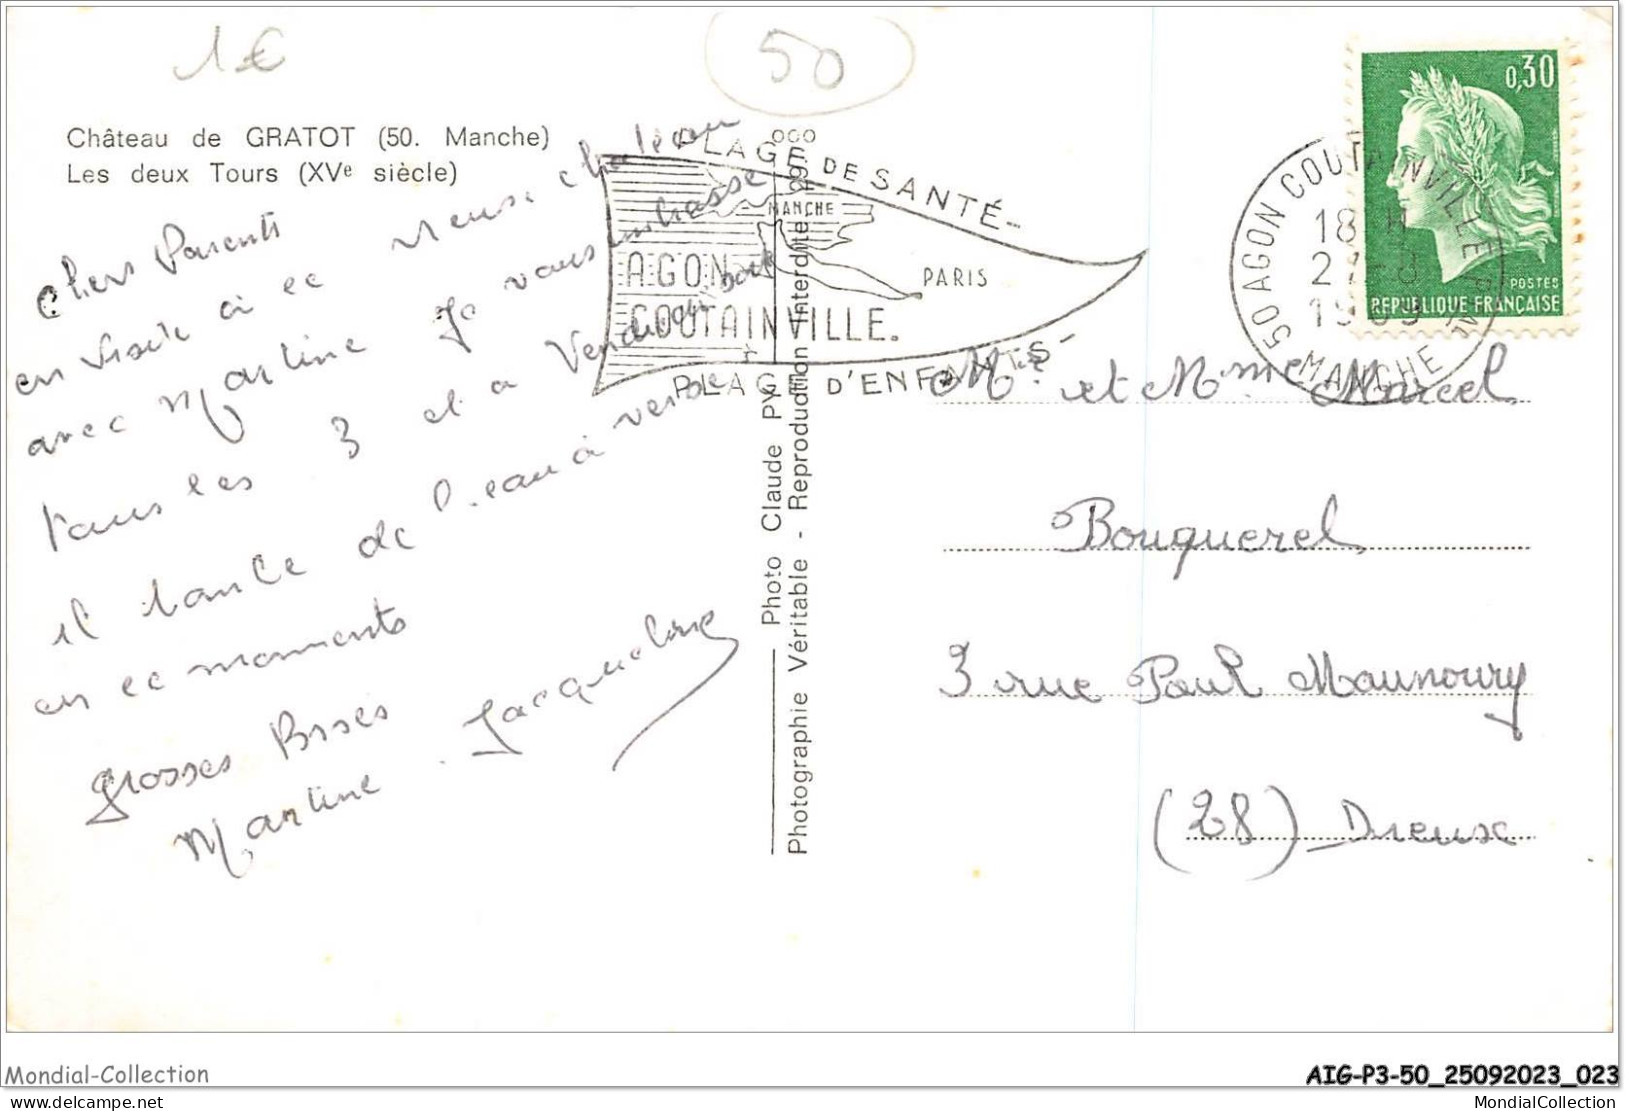 1€
50
Château de GRATOT (50. Manche)
Les deux Tours (XVe siècle)
Chers Parents
en visite à ce vieux château
avec Martine Je vous embrasse
tous les 3 et à Vendredi soir
il tombe de l'eau à verse
en ce moments
grosses Bises
Martine. Jacqueline
PLAGE DE SANTÉ-
MANCHE
AGON
PARIS
COUTAINVILLE.
PLAGE D'ENFANTS-
Photo Claude PY
Photographie Véritable - Reproduction Interdite
50 AGON COUTAINVILLE
18 H
1969
MANCHE
0,30
POSTES
REPUBLIQUE FRANÇAISE
Mr. et Mme Marcel
Bouquerel
3 rue Paul Maunoury
(28) Dreux
Mondial-Collection
AIG-P3-50_25092023_023
delcampe.net
MondialCollection